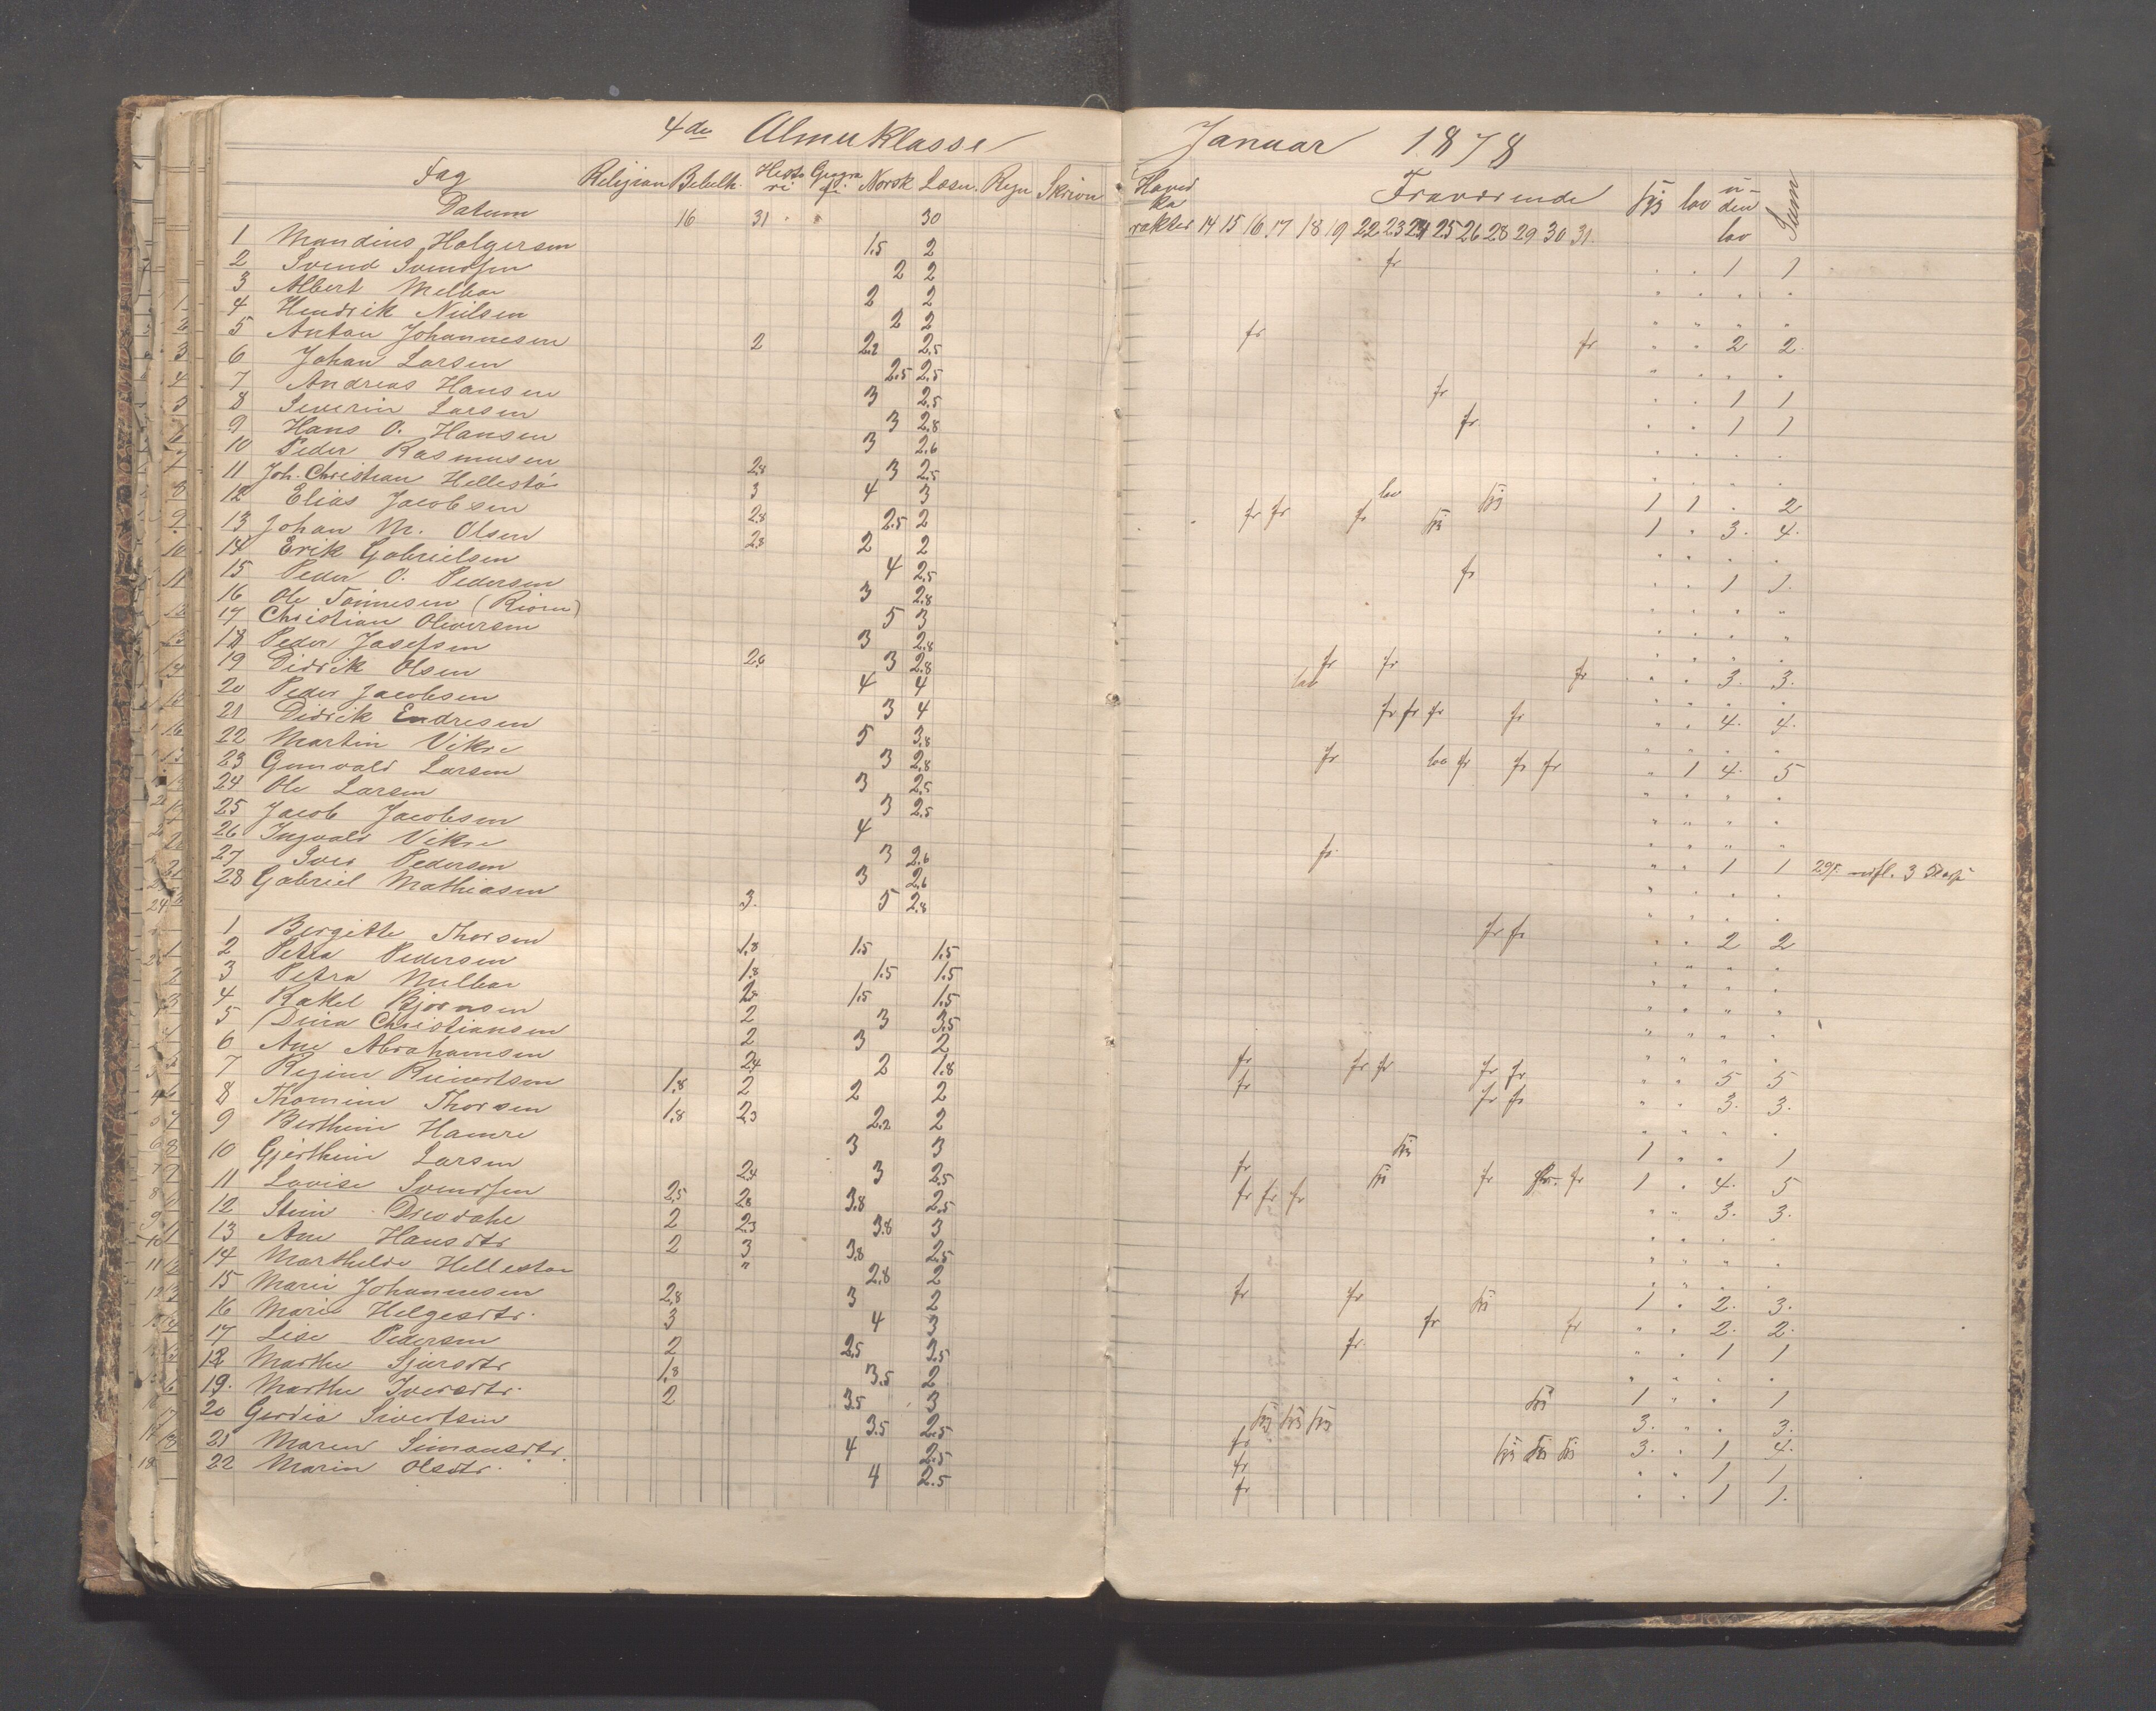 4de Almuklasse
Fag Religion Bibelh. Histori Geografi Norsk Læsn. Regn Skrivn
Datum 16 31 30
1 Mandius Holgersen 1.5 2
2 Svend Svendsen 2 2
3 Albert Melbøe 2 2
4 Hendrik Nielsen 2 2
5 Anton Johannesen 2 2.2 2.5
6 Johan Larsen 2.5 2.5
7 Andreas Hansen 3 2.5
8 Severin Larsen 3 2.8
9 Hans O. Hansen 3 2.6
10 Peder Rasmusen 2.8 3 2.5
11 Joh. Christian Hellestø 3 4 3
12 Elias Jacobsen 2.8 2.5 2
13 Johan M. Olsen 2.8 2 2
14 Erik Gabrielsen 4 2.5
15 Peder O. Pedersen 3 2.8
16 Ole Tønnesen 5 3
17 Christian Oliversen 3 2.8
18 Peder Josefsen 2.6 3 2.8
19 Didrik Olsen 4 4
20 Peder Jacobsen 3 4
21 Didrik Endresen 5 3.8
22 Martin Vikre 3 2.8
23 Gunvald Larsen 3 2.5
24 Ole Larsen 3 2.5
25 Jacob Jacobsen 4
26 Ingvald Vikre 3 2.6
27 Iver Pedersen 3 2.6
28 Gabriel Mathiasen 3. 5 2.8
1 Bergitte Thorsen 1.8 1.5 1.5
2 Petra Pedersen 1.8 1.5 1.5
3 Petra Melbøe 1.5 1.5
4 Rakel Bjørnsen 2 3 3.5
5 Dina Christiansen 2 3 2
6 Ane Abrahamsen 2.4 2 1.8
7 Regine Reinertsen 1.8 2 2 2
8 Thomine Thorsen 1.8 2.3 2.2 2
9 Berthine Hamre 3 3
10 Gjerthine Larsen 2.4 3 2.5
11 Lovise Svendsen 2.5 2.8 3.8 2.5
12 Stine 2 2.3 3.8 3
13 Ane Hansdtr 2 3 3.8 2.5
14 Marthilde Hellestøe " 2.8 2
15 Marie Johannesen 2.8 3 2
16 Marie Helgesdtr. 3 4 3
17 Lise Pedersen 2 2.5 3.5
18 Marthe Sjursdtr 1.8 3.5 2
19. Marthe Iversdtr. 2 3.5 3
20 Gerdia Sivertsen 3.5 2.5
21 Maren Simonsdtr. 4 2.5
22 Marin Olsdtr. 4 2.5
Januar 1878
Hovedkarakter Fraværende syg lov uden lov Sum
14 15 16 17 18 19 22 23 24 25 26 28 29 30 31.
fr 1 1
fr fr 2 2.
fr 1 1
fr 1 1
lov syg 1 1 2
fr fr fr syg 1 3. 4.
fr 1 1.
fr fr fr 3. 3.
lov
fr fr fr fr 4. 4.
fr lov fr fr fr 1 4. 5
fr 1 1
fr fr 2 2
fr fr fr fr fr 5 5
fr fr fr 3. 3.
syg 1 1
fr syg fr fr 1 4. 5
fr fr fr 3. 3.
fr fr syg 1 2. 3.
fr fr 2. 2.
fr 1 1
syg 1 1
syg syg syg 3. 3.
fr syg syg syg 3. 1 4.
fr 1 1
fr 1 1.